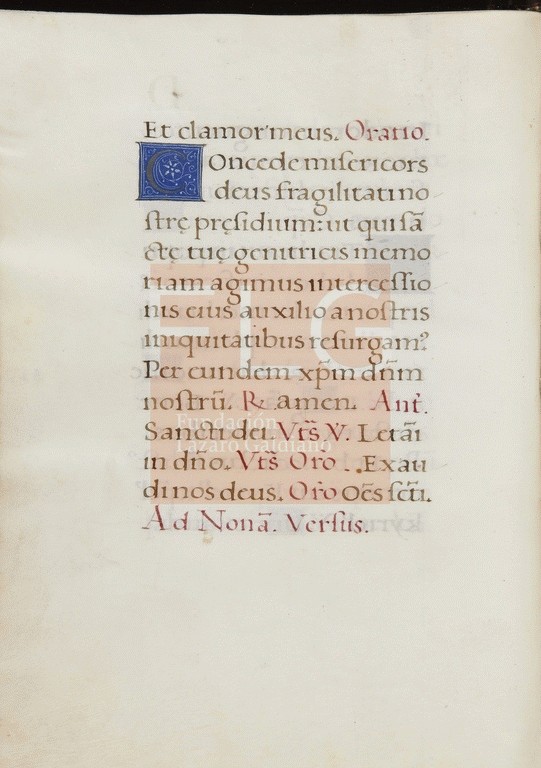 Et clamor meus. Oratio.
Concede misericors
deus fragilitati no
strę pręsidium: ut qui sã
ctę tuę genitricis memo
riam agimus intercessio
nis eius auxilio a nostris
iniquitatibus resurgam?
Per eundem xp̃m dñm
nostrũ. R. amen. Ant.
Sancti dei. Vts̃ V. Letãi
in dño. Vts̃ Oro. Exau
di nos deus. Or̃o Oẽs sc̃ti.
Ad Nonã. Versus.
FLG
Fundación
Lázaro Galdiano